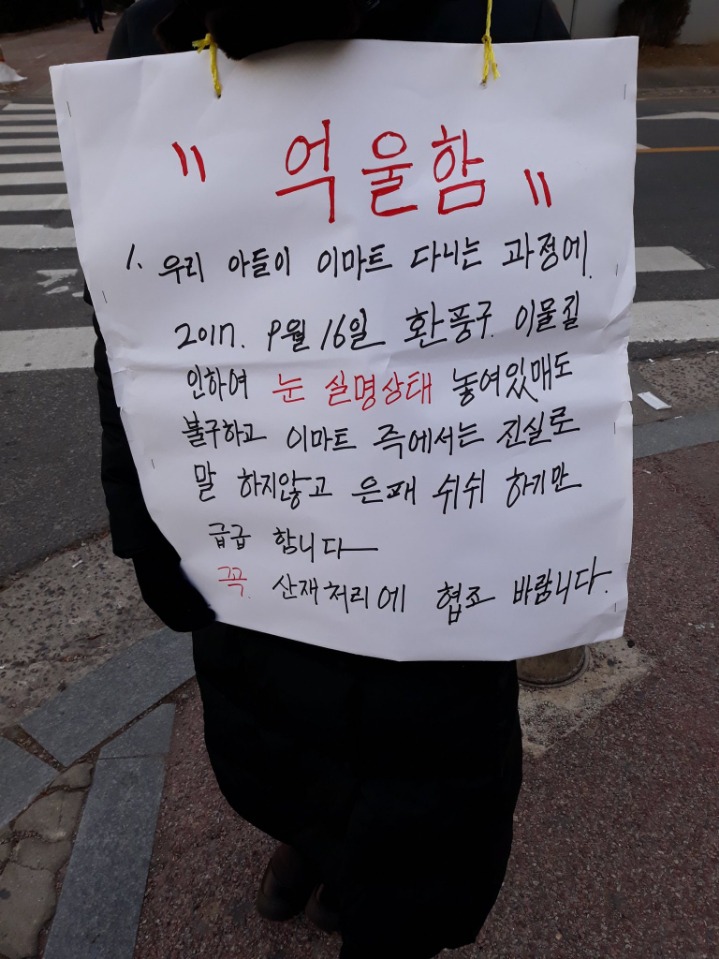 " 억울함 "
1. 우리 아들이 이마트 다니는 과정에.
2017. 9월 16일 환풍구. 이물질
인하여 눈 실명상태 놓여있매도
불구하고 이마트 측에서는 진실로
말 하지않고 은패 쉬쉬 하기만
급급 합니다
꼭. 산재처리에 협조 바랍니다.